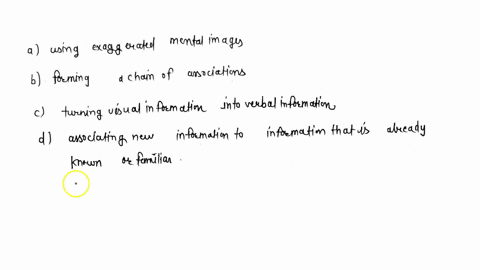 a) using exaggerated mental images
b) forming a chain of associations
c) turning visual information into verbal information
d) associating new information to information that is already
known or familiar.